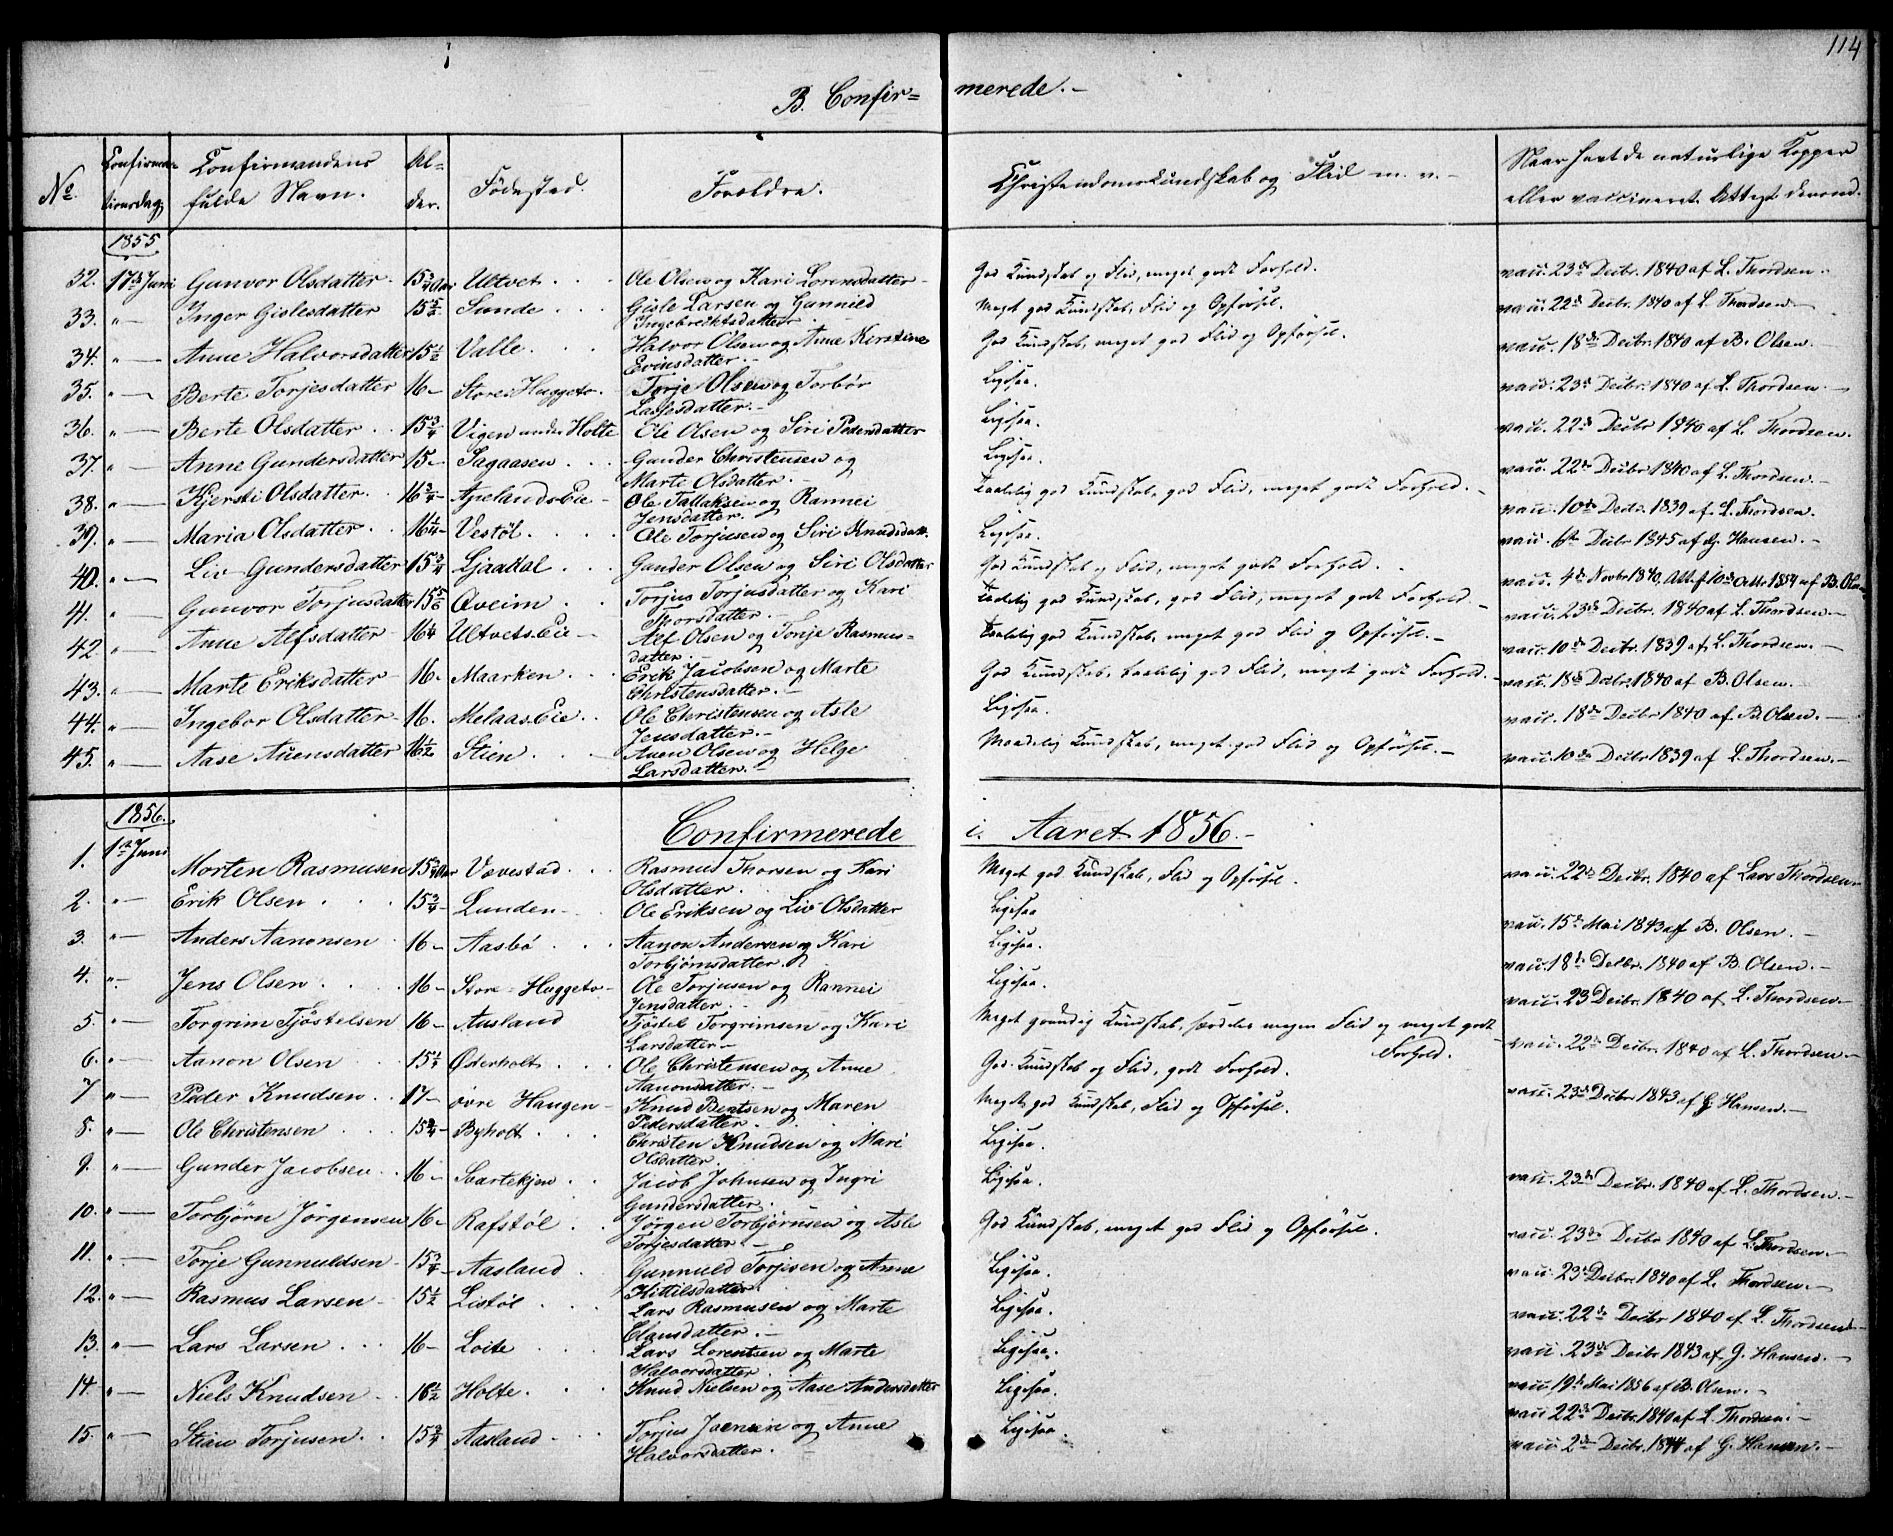 114
B. Confirmerede.-
No. Confirmationsdag Confirmandens fulde Navn. Alder. Fødested. Forældre. Christendomskundskab og Flid m. v.- Naar havt de naturlige Kopper eller vaccineret. Attest derom.
1855
32. 17de Juni Gunvor Olsdatter 15 3/4 Aar Ultvet Ole Olsen og Kari Lorensdatter God Kundskab og Flid, meget godt Forhold. vacc. 23de Decbr. 1840 af L. Thordsen.
33. " Inger Gislesdatter 15 1/2 Sunde Gisle Larsen og Gunnild Ingebrektsdatter Meget god Kundskab, Flid og Opførsel. vacc. 22de Decbr. 1840 af L. Thordsen.
34. " Anne Halvorsdatter 15 1/2 Valle Halvor Olsen og Anne Kirstine Evinsdatter. God Kundskab, meget god Flid og Opførsel. vacc. 18de Decbr. 1840 af B. Olsen.
35. " Berte Torjesdatter 16 Store Huggeto Torje Olsen og Torbør Lassesdatter. Ligesaa. vacc. 23de Decbr. 1840 af L. Thordsen.
36. " Berte Olsdatter 15 3/4 Vigen under Holte Ole Olsen og Siri Pedersdatter Ligesaa. vacc. 22de Decbr 1840 af L. Thordsen.
37. " Anne Gundersdatter 15 Sagaasen Gunder Christensen og Marte Olsdatter. Ligesaa. vacc. 22de Decbr 1840 af L. Thordsen.
38. " Kjersti Olsdatter 16 3/4 Ole Tallaksen og Rannei Jensdatter. Taalelig god Kundskab, god Flid, meget godt Forhold. vacc. 10de Decbr. 1839 af L. Thordsen.
39. " Maria Olsdatter 16 1/4 Vestøl Ole Torjusen og Siri Knudsdatt. Ligesaa. vacc. 6te Decbr 1845 af G. Hansen.
40. " Liv Gundersdatter 15 3/4 Ljaakal Gunder Olsen og Siri Olsdatter God Kundskab og Flid, meget godt Forhold. vacc. 4de Novbr 1840. Att. af 10de Octbr 1854 af B. Olsen
41. " Gunvor Torjusdatter 15 5/6 Øveim Torjus Torjusdatter og Kari Thorsdatter. Taalelig god Kundskab, god Flid, meget godt Forhold. vacc. 23de Decbr. 1840 af L. Thordsen.
42 " Anne Alfsdatter 16 1/4 Ultvets Eie Alf Olsen og Tonje Rasmusdatter. Taalelig god Kundskab, meget god Flid og Opførsel. vacc. 10de Decbr. 1839 af L. Thordsen.
43. " Marte Eriksdatter 16. Maarken Erik Jacobsen og Marte Christensdatter. God Kundskab, taalelig god Flid, meget godt Forhold. vacc. 18de Decbr. 1840 af B. Olsen.
44. " Ingebor Olsdatter 16. Melaas Eie Ole Christensen og Asle Jensdatter. Ligesaa. vacc. 18de Decbr 1840 af B. Olsen.
45. " Aase Auensdatter 16 1/2 Stien Auen Olsen og Helge Larsdatter. Maadelig Kundskab, meget god Flid og Opførsel. vacc. 10de Decbr 1839 af L. Thordsen.
1856.
Confirmerede i Aaret 1856.
1. 1ste Juni Morten Rasmusen 15 3/4 Aar Vævestad Rasmus Thorsen og Kari Olsdatter. Meget god Kundskab, Flid og Opførsel. vacc. 22de Decbr. 1840 af Lars Thordsen
2. " Erik Olsen 15 3/4 Lunden Ole Eriksen og Liv Olsdatter Ligesaa vacc. 15de Mai 1843 af B. Olsen.
3. " Anders Aanonsen 16 Aasbø Aanon Andersen og Kari Torbjørnsdatter. Ligesaa. vacc. 18de Decbr. 1840 af B. Olsen.
4. " Jens Olsen 16 Store-Huggeto Ole Torjusen og Rannei Jensdatter. Ligesaa. vacc. 23de Decbr. 1840 af L. Thordsen.
5. " Torgrim Tjøstelsen 16 Aasland Tjøstel Torgrimsen og Kari Larsdatter Meget grundig Kundskab, særdeles megen Flid og meget godt Forhold. vacc. 22de Decbr. 1840 af L. Thordsen.
6. " Aanon Olsen 15 1/4 Øderholt Ole Christensen og Anne Aanonsdatter. God Kundskab og Flid, godt Forhold.
7 " Peder Knudsen 17 øvre Haugen Knud Bentsen og Maren Pedersdatter. Meget god Kundskab, Flid og Opførsel. vacc. 23de Decbr 1843 af G. Hansen.
8. " Ole Christensen 15 3/4 Byholt Christen Knudsen og Mari Olsdatter. Ligesaa.
9. " Gunder Jacobsen 16 Svartekjen Jacob Johnsen og Ingri Gundersdatter. Ligesaa. vacc. 23de Decbr. 1840 af L. Thordsen.
10. " Torbjørn Jørgensen 16 Rafstøl Jørgen Torbjørnsen og Asle Torjesdatter God Kundskab, meget god Flid og Opførsel. vacc. 23de Decbr 1840 af L. Thordsen.
11. " Torje Gunnuldsen 15 3/4 Aasland Gunnuld Torjesen og Anne Kittilsdatter. Ligesaa. vacc. 23de Decbr. 1840 af L. Thordsen.
12. " Rasmus Larsen 15 1/2 Listøl Lars Rasmusen og Marte Clausdatter. Ligesaa. vacc. 22de Decbr 1840 af L. Thordsen
13. " Lars Larsen 16 Loite Lars Lorentsen og Marte Halvorsdatter. Ligesaa. vacc. 23de Decbr 1843 af G. Hansen.
14. " Niels Knudsen 16 1/2 Holte Knud Nielsen og Aase Andersdatter Ligesaa. vacc. 19de Mai 1856 af B. Olsen.
vacc. 22de Decbr. 1840 af L. Thordsen.
15. " Stian Torjusen 15 3/4 Aasland Torjus Jensen og Anne Halvorsdatter. Ligesaa. vacc. 2de Decbr. 1844 af G. Hansen.